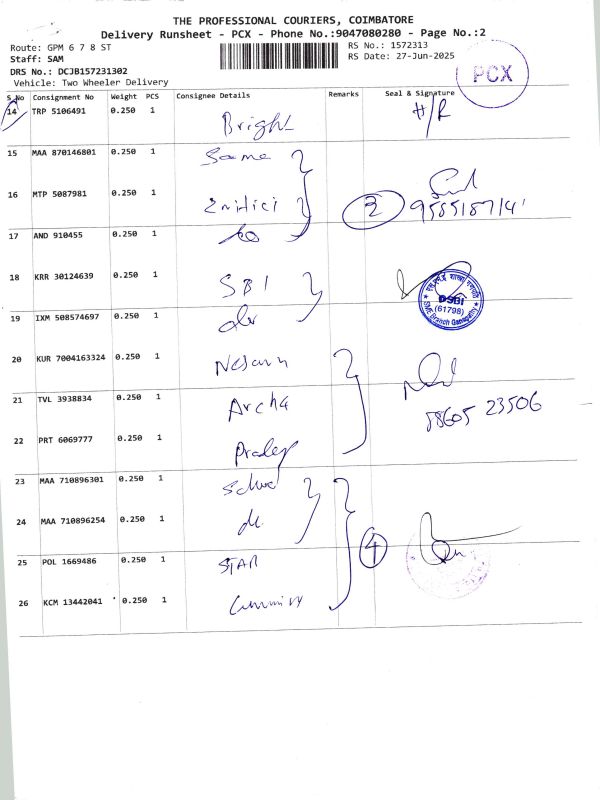 THE PROFESSIONAL COURIERS, COIMBATORE
Delivery Runsheet - PCX - Phone No.:9047080280 - Page No.:2
Route: GPM 6 7 8 ST
RS No.: 1572313
Staff: SAM
RS Date: 27-Jun-2025
DRS No.: DCJB157231302
PCX
Vehicle: Two Wheeler Delivery
S.No Consignment No Weight PCS Consignee Details Remarks Seal & Signature
14 TRP 5106491 0.250 1 Bright H/R
15 MAA 870146801 0.250 1 Same
16 MTP 5087981 0.250 1
17 AND 910455 0.250 1
18 KRR 30124639 0.250 1 SBI
DSBI
(61798)
SME Branch Ganapathy
19 IXM 508574697 0.250 1
20 KUR 7004163324 0.250 1
21 TVL 3938834 0.250 1 Archa
88605 23506
22 PRT 6069777 0.250 1 Pradep
23 MAA 710896301 0.250 1
24 MAA 710896254 0.250 1
4
25 POL 1669486 0.250 1 STAR
26 KCM 13442041 0.250 1